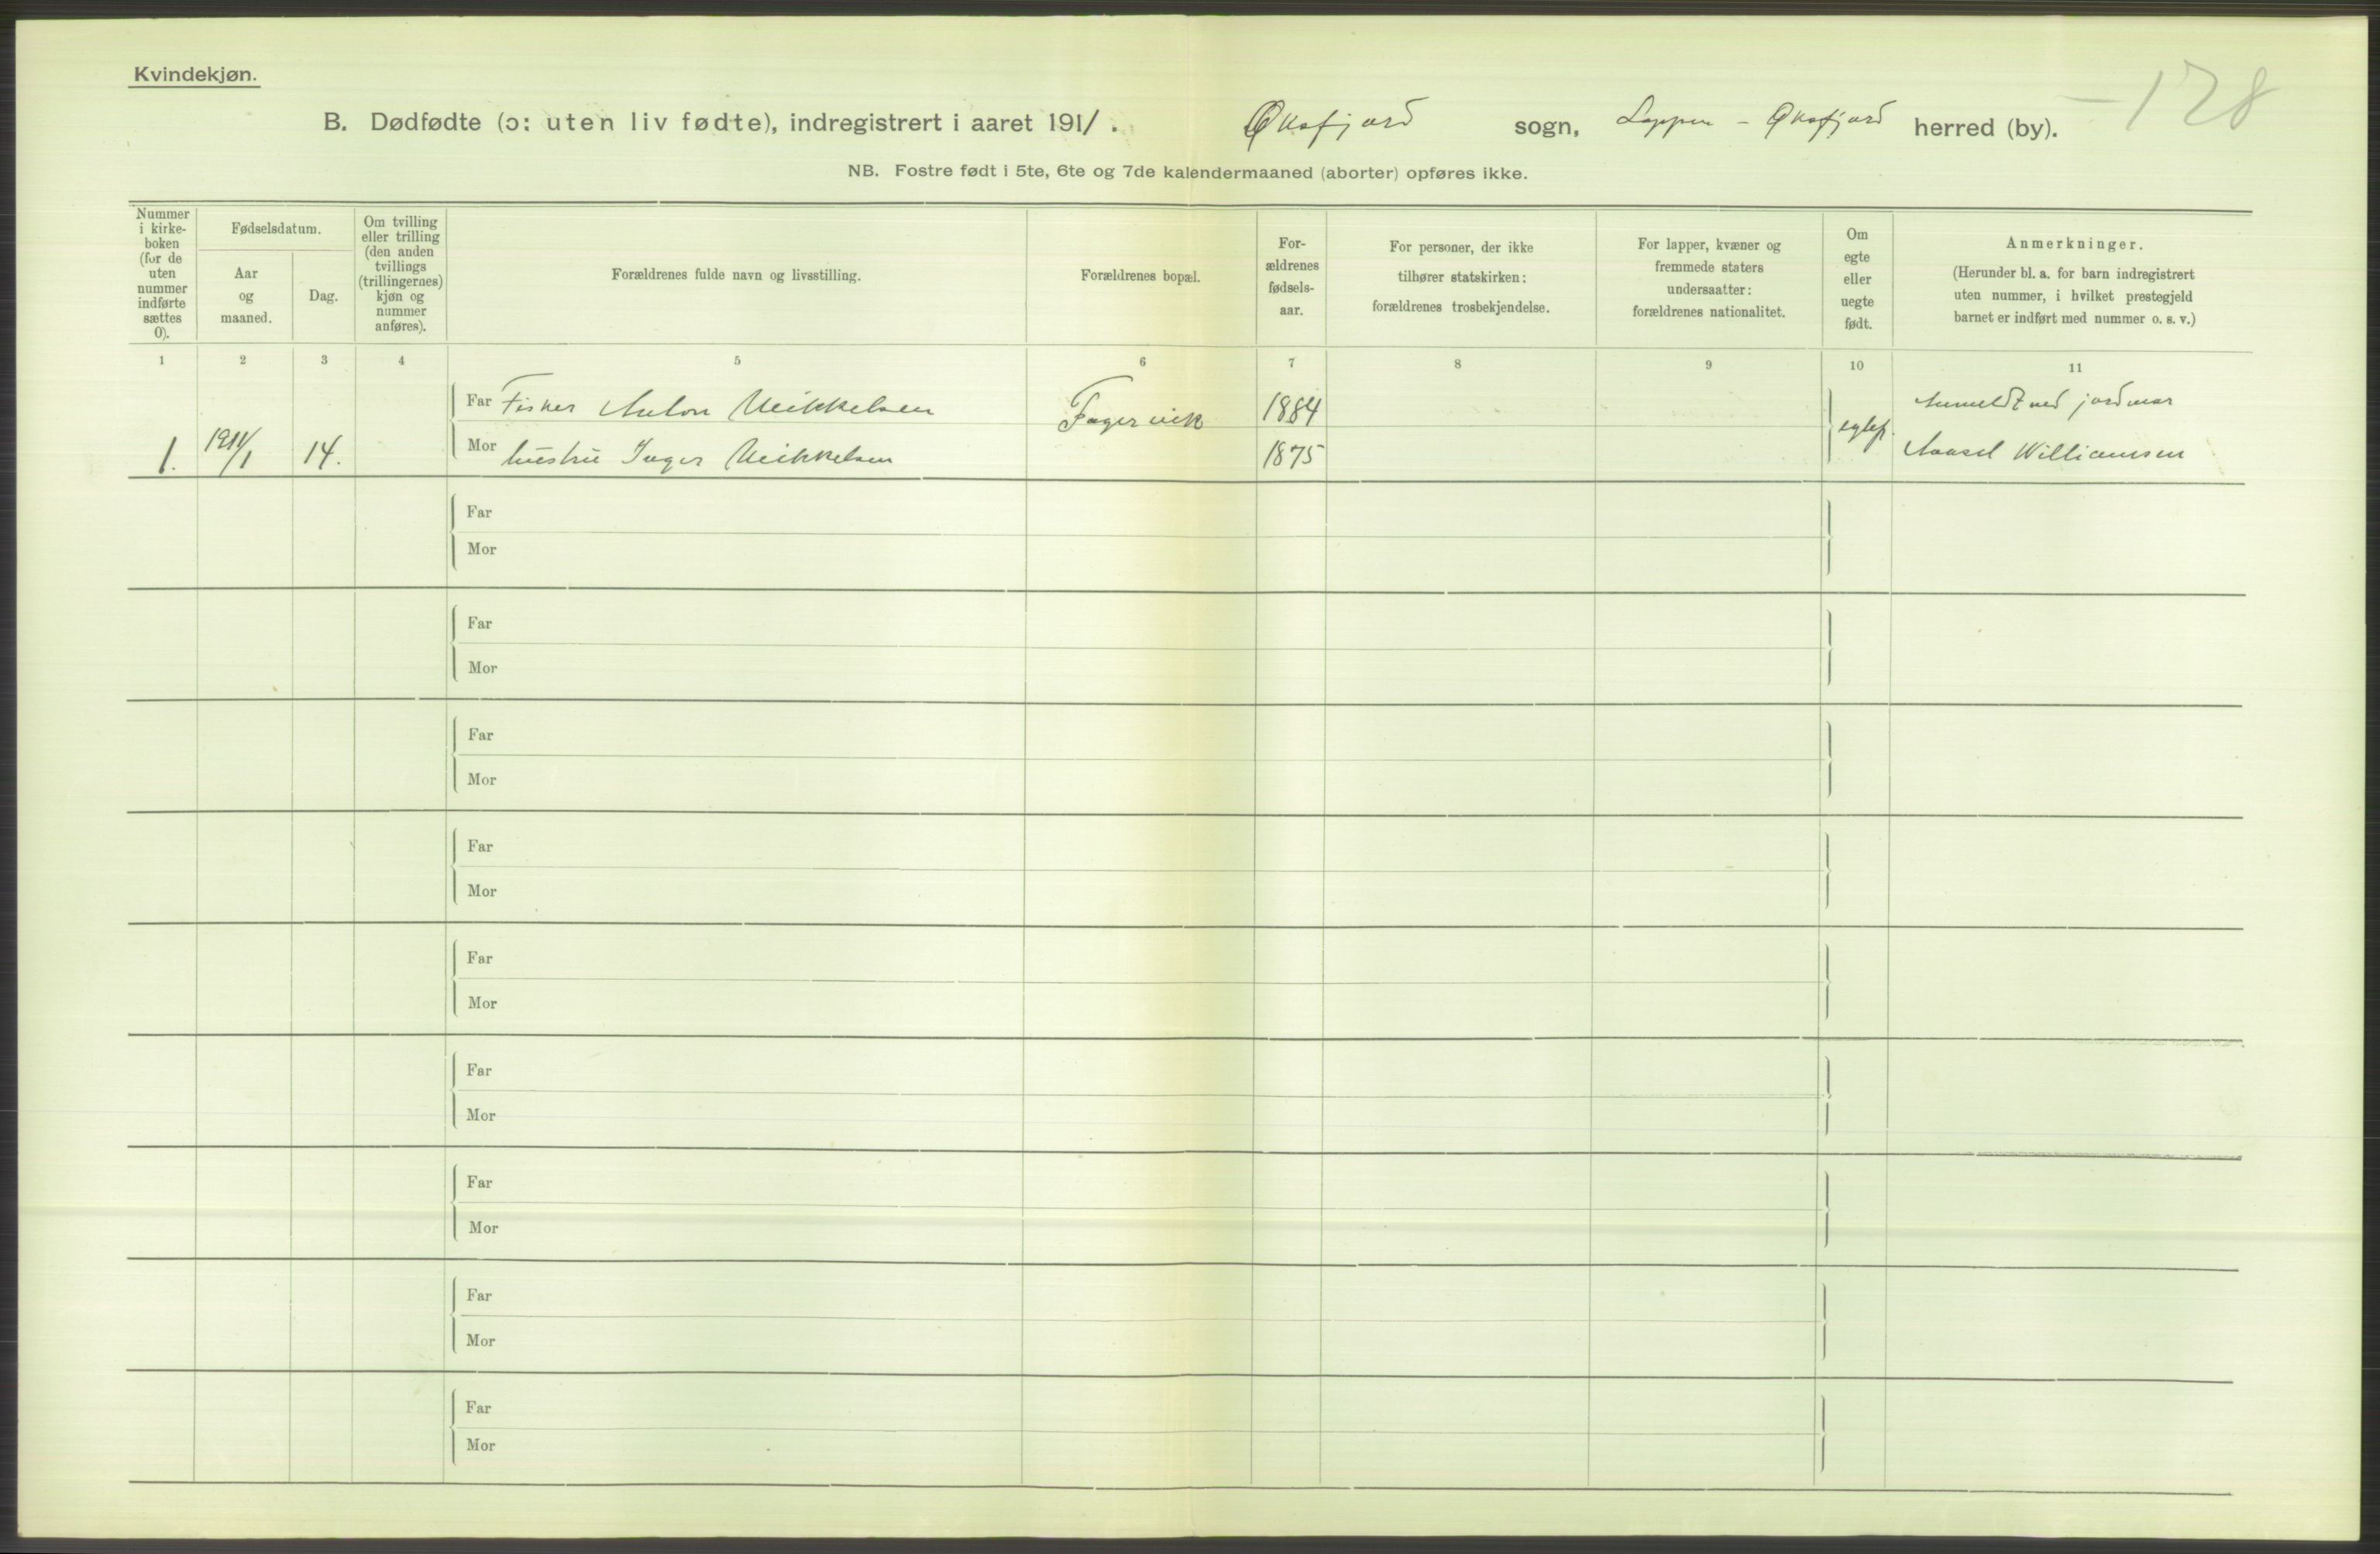 Kvindekjøn.
B. Dødfødte (ɔ: uten liv fødte), indregistrert i aaret 1911. Øksfjord sogn, Loppen - Øksfjord herred (by). 128
NB. Fostre født i 5te, 6te og 7de kalendermaaned (aborter) opføres ikke.
Nummer i kirke- boken (for de uten nummer indførte sættes 0).
Fødselsdatum.
Aar og maaned.
Dag.
Om tvilling eller trilling (den anden tvillings (trillingernes) kjøn og nummer anføres).
Forældrenes fulde navn og livsstilling.
Forældrenes bopæl.
For- ældrenes fødsels- aar.
For personer, der ikke tilhører statskirken: forældrenes trosbekjendelse.
For lapper, kvæner og fremmede staters undersaatter: forældrenes nationalitet.
Om egte eller uegte født.
Anmerkninger.
(Herunder bl. a. for barn indregistrert uten nummer, i hvilket prestegjeld barnet er indført med nummer o. s. v.)
1 2 3 4 5 6 7 8 9 10 11
Far Fisker Anton Mikkelsen Fagervik 1884 Anmeldt ved jordmor
1. 1911/1 14. Mor hustru Inger Mikkelsen 1875 egtef. Aasel Williamsen
Far
Mor
Far
Mor
Far
Mor
Far
Mor
Far
Mor
Far
Mor
Far
Mor
Far
Mor
Far
Mor